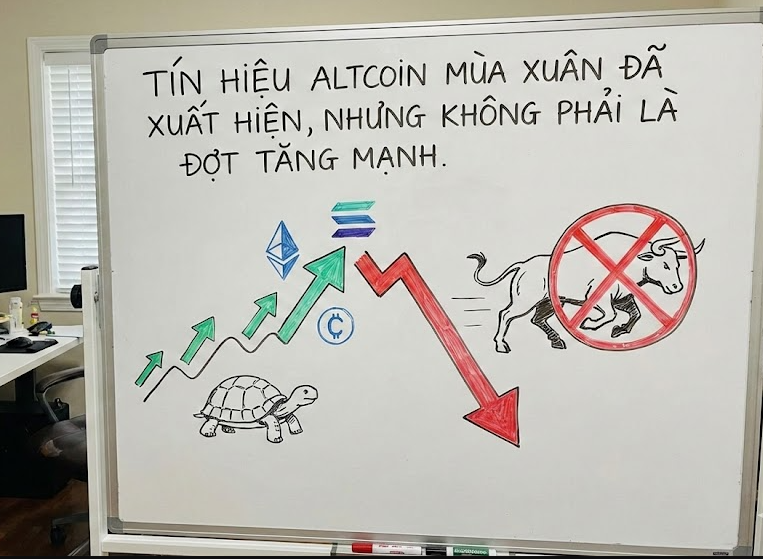 TÍN HIỆU ALTCOIN MÙA XUÂN ĐÃ
XUẤT HIỆN, NHƯNG KHÔNG PHẢI LÀ
ĐỢT TĂNG MẠNH.